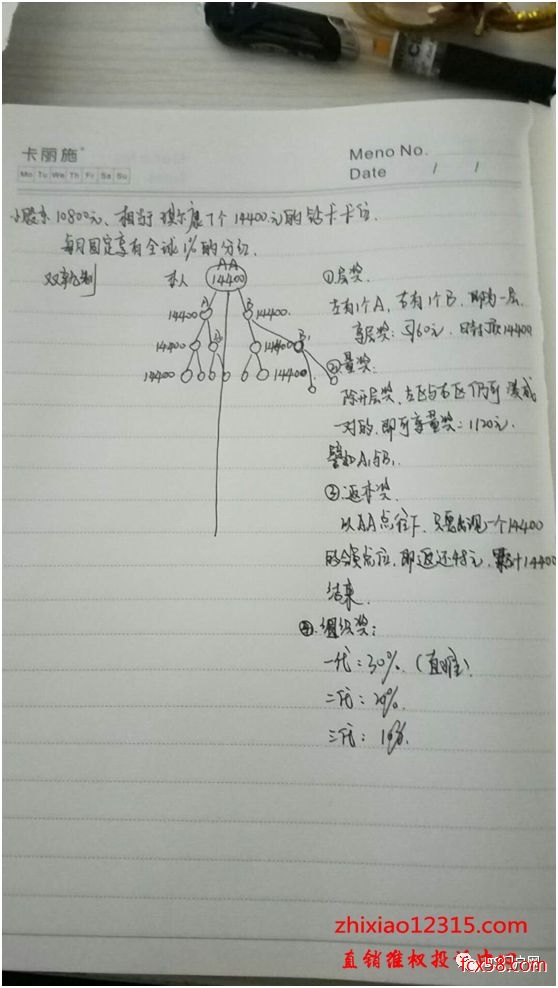 卡丽施
Meno No.
Mo Tu We Th Fr Sa Su
Date / /
小股东10800元、相当于 7个14400元的钻卡卡位.
每月固定享有全球1%的分红.
双轨制
本人
AA
14400
A
14400
B
14400
14400
14400
B1
14400
14400
①层奖.
左有1个A,右有1个B.即为一层.
享层奖:360元.日封顶14400
②量奖.
除开层奖,左区与右区仍可凑成
一对的.即可享量奖:1120元.
譬如A1与B1
③返本奖.
以AA点往下.只要出现一个14400
的会员点位,即返还48元,累计14400
结束.
④.组织奖:
一代:30%.(直推)
二代:20%.
三代:10%.
zhixiao12315.com
直销维权投诉
fcx98.com